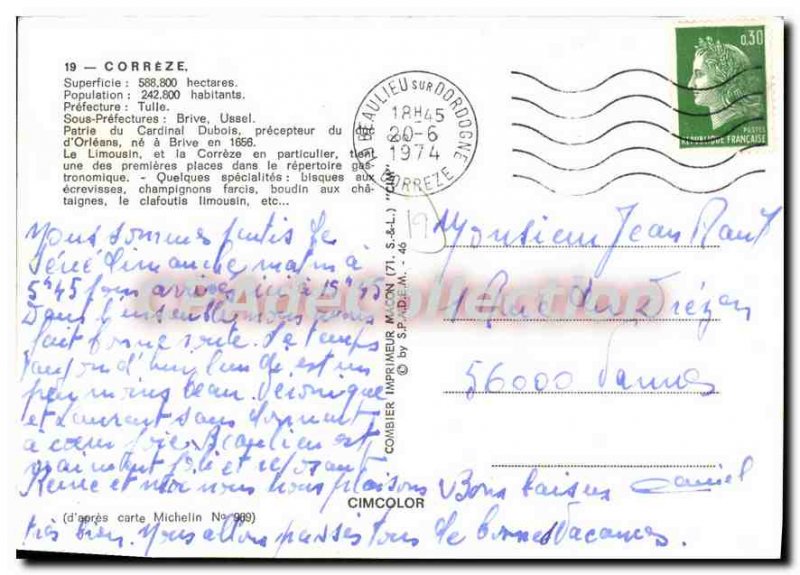 19 — CORRÈZE.
Superficie : 588.800 hectares.
Population : 242.800 habitants.
Préfecture : Tulle.
Sous-Préfectures : Brive, Ussel.
Patrie du Cardinal Dubois, précepteur du duc
d'Orléans, né à Brive en 1656.
Le Limousin, et la Corrèze en particulier, tient
une des premières places dans le répertoire gas-
tronomique. - Quelques spécialités : bisques aux
écrevisses, champignons farcis, boudin aux châ-
taignes, le clafoutis limousin, etc...
Nous sommes partis de
dimanche matin à
5h45 pour arriver ici à 15h45
Dans l'ensemble nous avons
fait bonne route. Le temps
aujourd'hui lundi est un
peu moins beau. Véronique
et Laurent sans donnent
à cœur joie. Beaulieu est
vraiment joli et reposant
et moi nous nous plaisons
très bien. Nous allons passer tous de bonnes Vacances.
Bons baisers Daniel
CIMCOLOR
(d'après carte Michelin No 989)
COMBIER IMPRIMEUR MACON (71. S.-&-L.) "CIM"
© by S.P.A.D.E.M. - 46
19 BEAULIEU SUR DORDOGNE
18H45
20-6
1974
CORREZE
0,30
POSTES
REPUBLIQUE FRANÇAISE
19
Monsieur Jean
Rue
56000 Vannes
CPAdeCollection